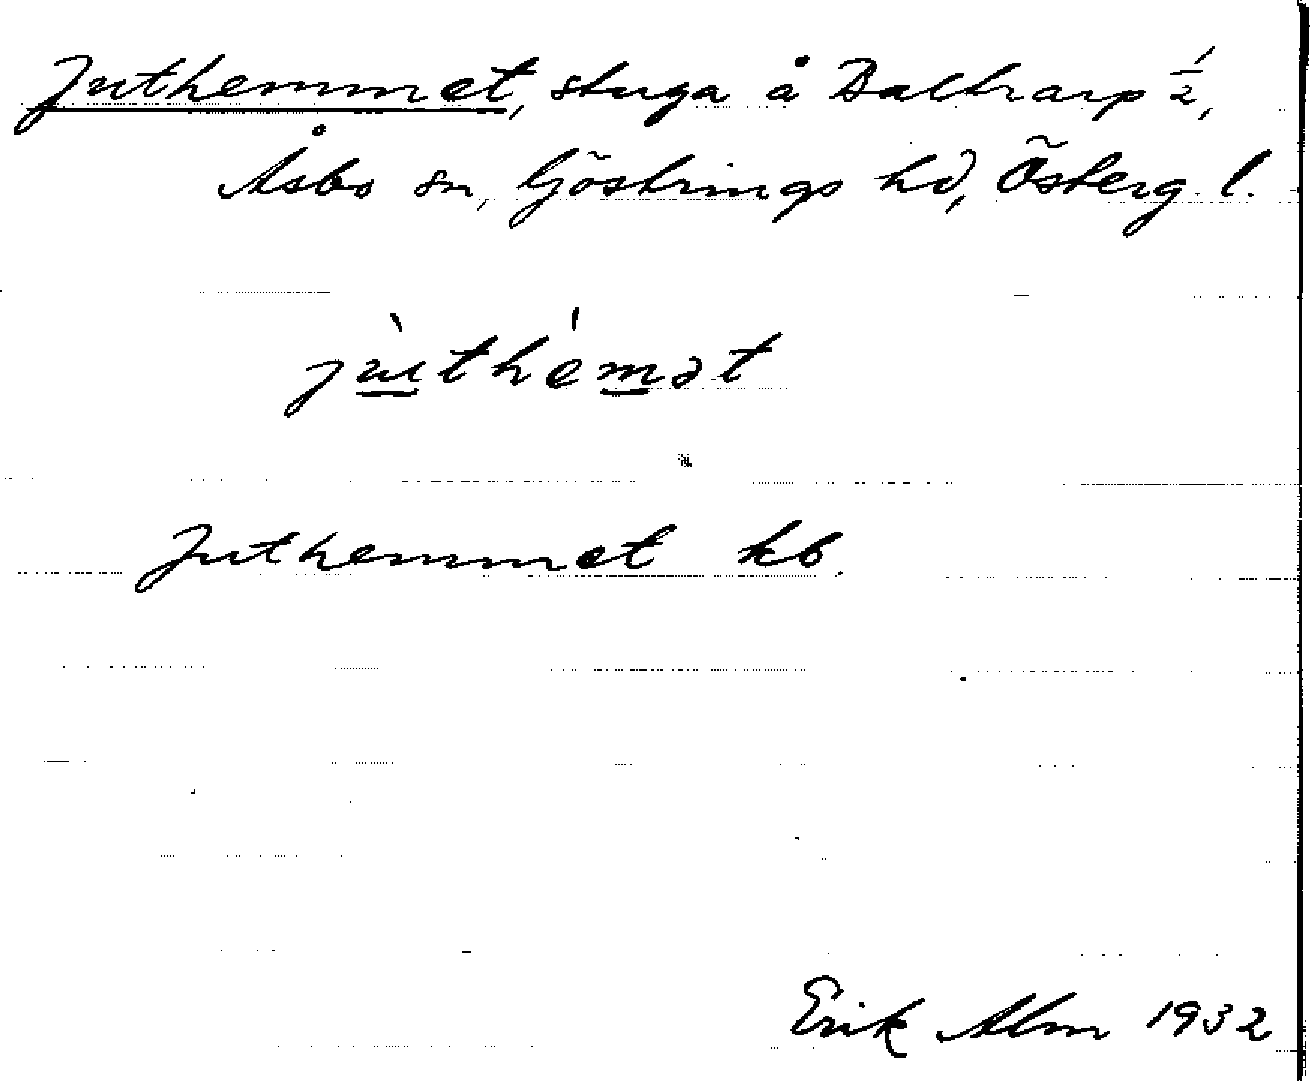 Juthemmet, stuga å Daltrarp 1/2,
Åsbo sn, Göstrings hd, Österg. l.
jùthémət
Juthemmet kb.
Erik Alm 1932